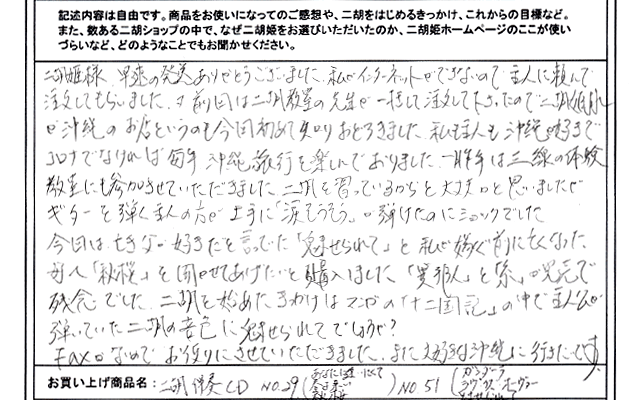 記述内容は自由です。商品をお使いになってのご感想や、二胡をはじめるきっかけ、これからの目標など。
また、数ある二胡ショップの中で、なぜ二胡姫をお選びいただいたのか、二胡姫ホームページのここが使い
づらいなど、どのようなことでもお聞かせください。
二胡姫様 早速の発送ありがとうございました。私がインターネットができないので主人に頼んで
注文してもらいました。前回は二胡教室の先生が一括して注文して下さったので二胡姫
が沖縄のお店というのも今回初めて知りおどろきました。私も主人も沖縄が好きで
コロナでなければ毎年沖縄旅行を楽しんでおりました。一昨年は三線の体験
教室にも参加させていただきました。二胡を習っているからと大丈夫と思いましたが
ギターを弾く主人の方が上手に「涙そうそう」が弾けたのにショックでした
今回は亡き父が好きだと言ってた「魅せられて」と私が嫁ぐ前に亡くなった
母へ「秋桜」を聞かせてあげたいと購入しました。「異邦人」と「糸」が完売で
残念でした。二胡を始めたきっかけはマンガの「十二国記」の中で主人公が
弾いていた二胡の音色に魅せられてでしょうか?
FAXなのでお便りにさせていただきました。また大好きな沖縄に行きたいです
お買い上げ商品名:二胡伴奏CD NO.29 NO 51